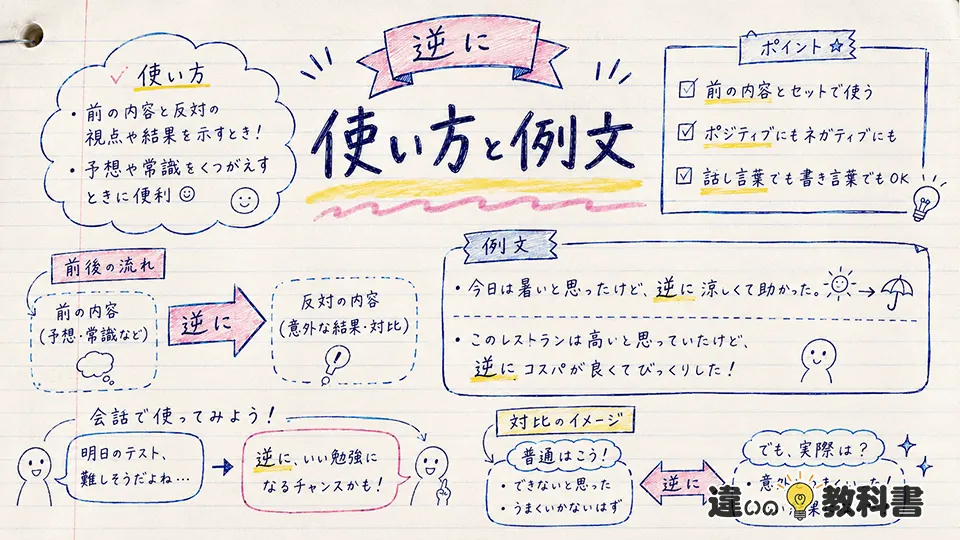 逆に
使い方と例文
使い方
・前の内容と反対の
視点や結果を示すとき!
・予想や常識をくつがえす
ときに便利
ポイント
前の内容とセットで使う
ポジティブにもネガティブにも
話し言葉でも書き言葉でもOK
前後の流れ
前の内容
(予想・常識など)
逆に
反対の内容
(意外な結果・対比)
例文
・今日は暑いと思ったけど、逆に涼しくて助かった。
・このレストランは高いと思っていたけど、
逆にコスパが良くてびっくりした!
会話で使ってみよう!
明日のテスト、
難しそうだよね…
逆に、いい勉強に
なるチャンスかも!
対比のイメージ
普通はこう!
・できないと思った
・うまくいかないはず
逆に
でも、実際は?
・意外
違いの教科書